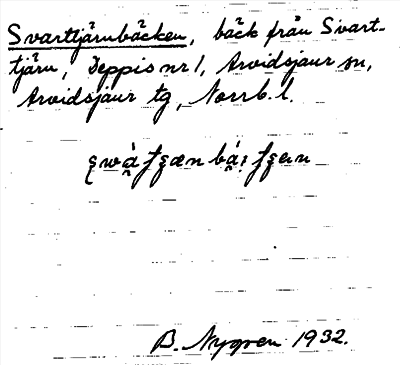 Svarttjärnbäcken, bäck från Svart-
tjärn, Deppis nr 1, Arvidsjaur sn,
Arvidsjaur tg, Norrb. l.
B. Nygren 1932.